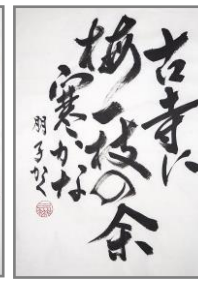 古寺に
梅一枝の余
寒かな
朋子かく